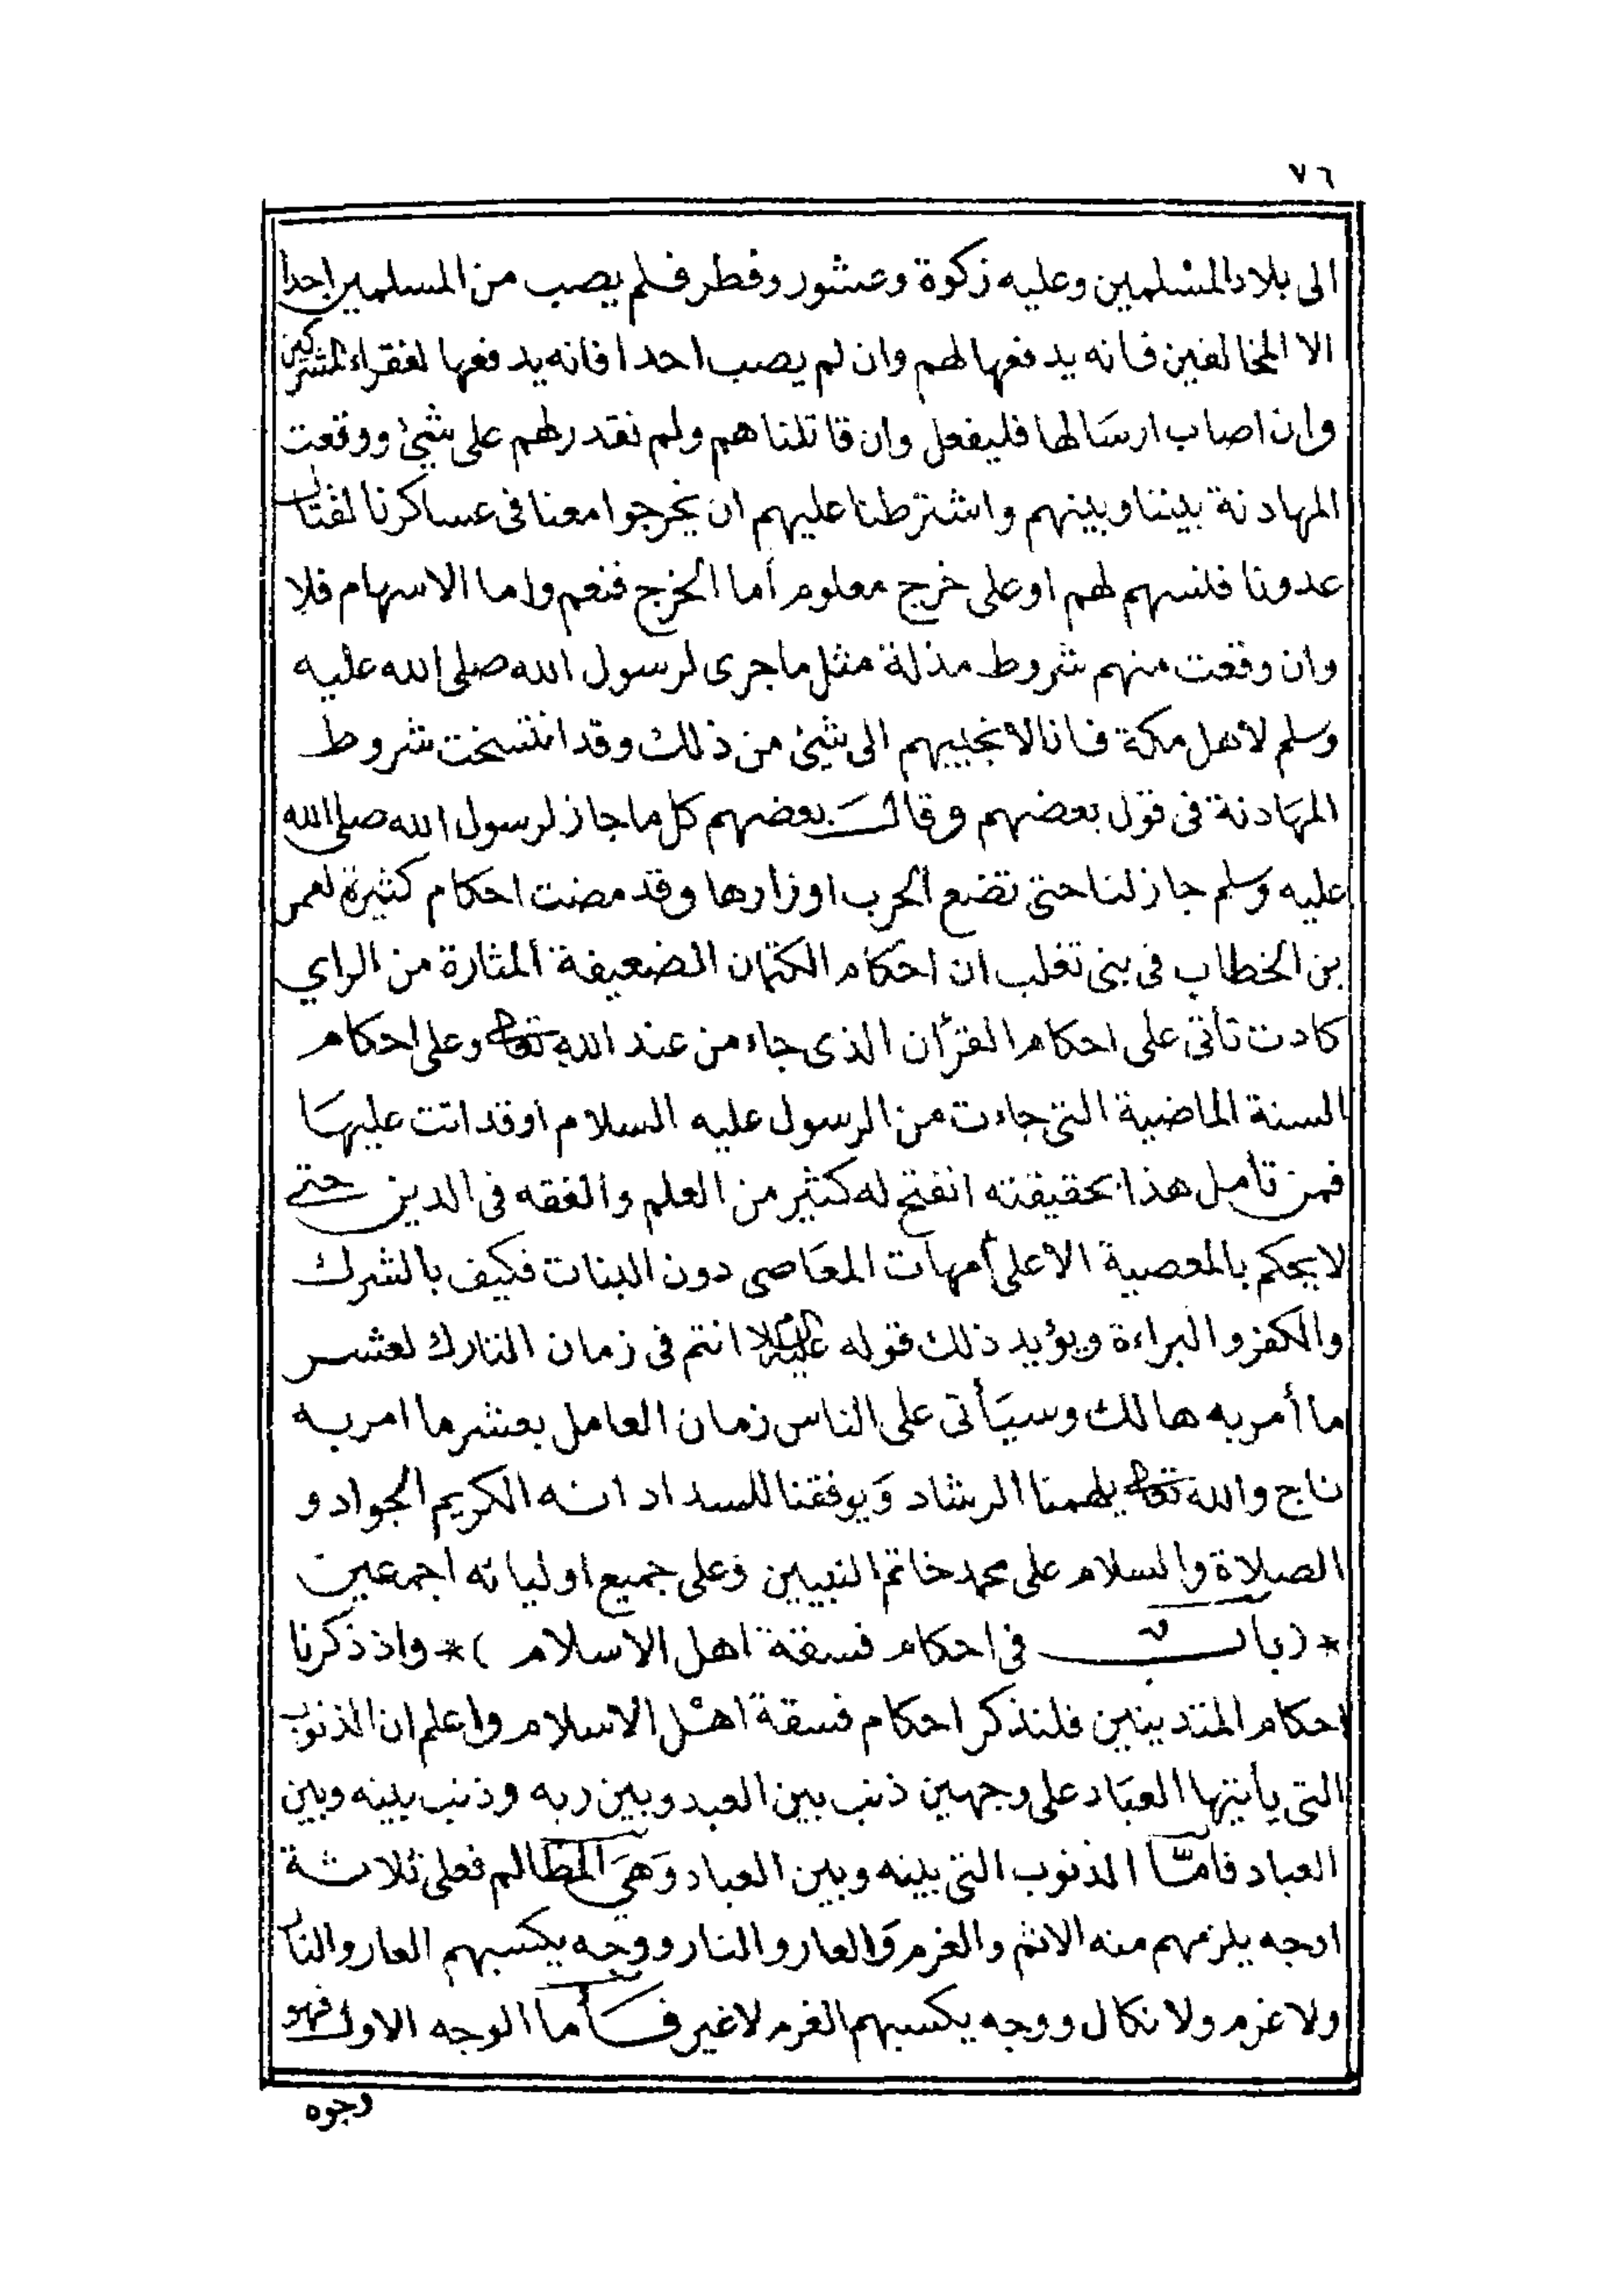 ٧٦
الى بلاد المسلمين وعليه زكوة وعشور وفطر فلم يصب من المسلمين احدا
الا المخالفين فانه يدفعها لهم وان لم يصب احدا فانه يدفعها لفقراء المشركين
وان اصاب ارسالها فليفعل وان قاتلناهم ولم نقدر لهم على شيئ ووقعت
المهادنة بيننا وبينهم واشترطنا عليهم ان يخرجوا معنا فى عساكرنا لقتال
عدونا فلنسهم لهم او على خرج معلوم أما الخرج فنعم واما الاسهام فلا
وان وقعت منهم شروط مذلة مثل ما جرى لرسول الله صلى الله عليه
وسلم لاهل مكة فانا لا نجيبهم الى شيئ من ذلك وقد انتسخت شروط
المهَادنة فى قول بعضهم وقالَ بعضهم كل ما جاز لرسول الله صلى الله
عليه وسلم جاز لنا حتى تضع الحرب اوزارها وقد مضت احكام كثيرة لعمر
بن الخطاب فى بنى تغلب ان احكام الكتمان الضعيفة المثارة من الراي
كادت تأتى على احكام القرآن الذى جاء من عند الله تعالى وعلى احكام
السنة الماضية التى جاءت من الرسول عليه السلام او قد اتت عليهَا
فمن تأمل هذا بحقيقته انفتح له كثير من العلم والفقه فى الدين حتى
لا يحكم بالمعصية الا على أمهات المعَاصى دون البنات فكيف بالشرك
والكفر والبراءة ويؤيد ذلك قوله عليه السلام انتم فى زمان التارك لعشر
ما أمر به هالك وسيَأتى على الناس زمان العامل بعشر ما امر به
ناج والله تعالى يلهمنا الرشاد وَيوفقنا للسداد انه الكريم الجواد و
الصلاة والسلام على محمد خاتم النبيين وعلى جميع اوليائه اجمعين
* (باب فى احكام فسقة اهل الاسلام) * واذ ذكرنا
احكام المتدينين فلنذكر احكام فسقة اهل الاسلام واعلم ان الذنوب
التى يأتيها العبَاد على وجهين ذنب بين العبد وبين ربه وذنب بينه وبين
العباد فامّا الذنوب التى بينه وبين العباد وَهىَ المظالم فعلى ثلاثة
اوجه يلزمهم منه الاثم والغرم وَالعار والنار ووجه يكسبهم العار والنار
ولا غرم ولا نكال ووجه يكسبهم الغرم لا غير فَأما الوجه الاول فهو
وجوه